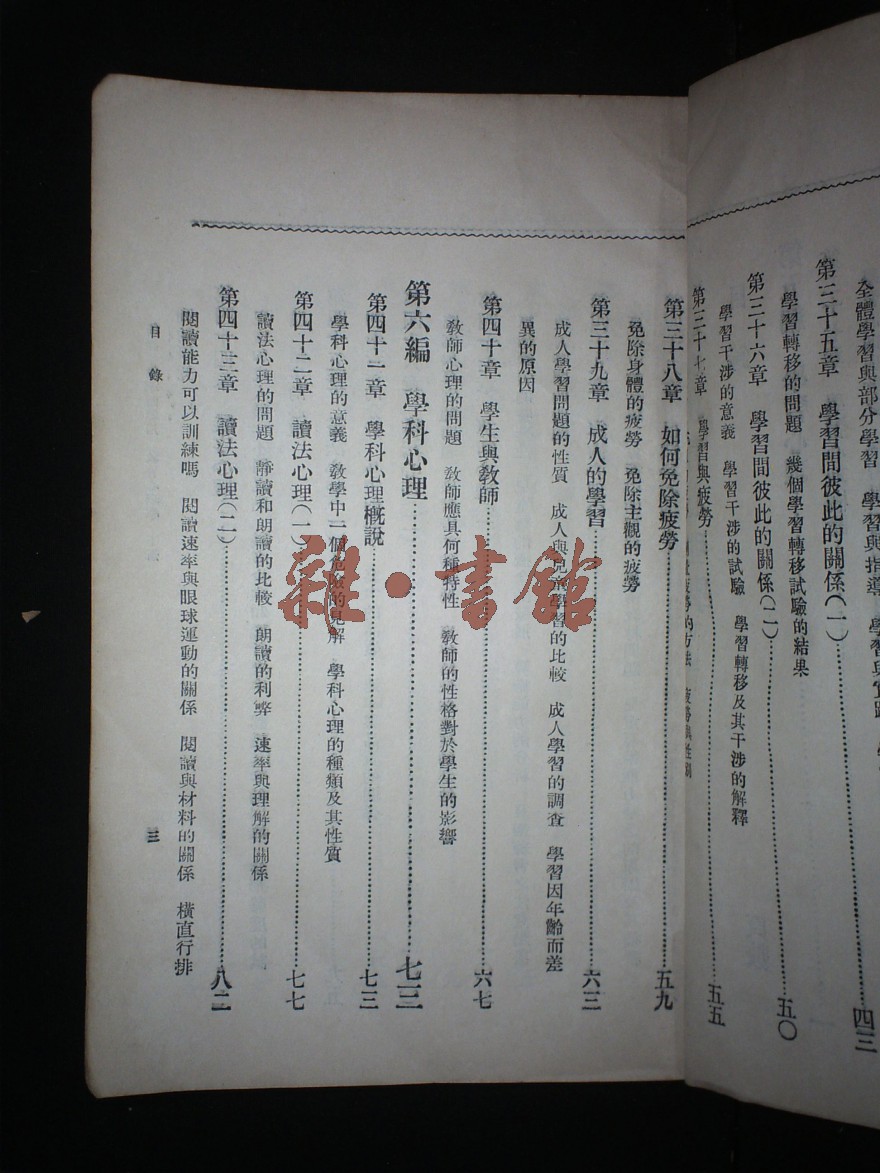 全體學習與部分學習 學習與指導 學習與實踐
第三十五章 學習間彼此的關係(一)……四三
學習轉移的問題 幾個學習轉移試驗的結果
第三十六章 學習間彼此的關係(二)……五〇
學習干涉的意義 學習干涉的試驗 學習轉移及其干涉的解釋
第三十七章 學習與疲勞……五五
疲勞的方法 疲勞與性別
第三十八章 如何免除疲勞……五九
免除身體的疲勞 免除主觀的疲勞
第三十九章 成人的學習……六三
成人學習問題的性質 成人與兒童學習的比較 成人學習的調查 學習因年齡而差
異的原因
第四十章 學生與教師……六七
教師心理的問題 教師應具何種特性 教師的性格對於學生的影響
第六編 學科心理……七三
第四十一章 學科心理概說……七三
學科心理的意義 教學中一個危險的見解 學科心理的種類及其性質
第四十二章 讀法心理(一)……七七
讀法心理的問題 靜讀和朗讀的比較 朗讀的利弊 速率與理解的關係
第四十三章 讀法心理(二)……八二
閱讀能力可以訓練嗎 閱讀速率與眼球運動的關係 閱讀與材料的關係 橫直行排
目錄
三
雜·書館